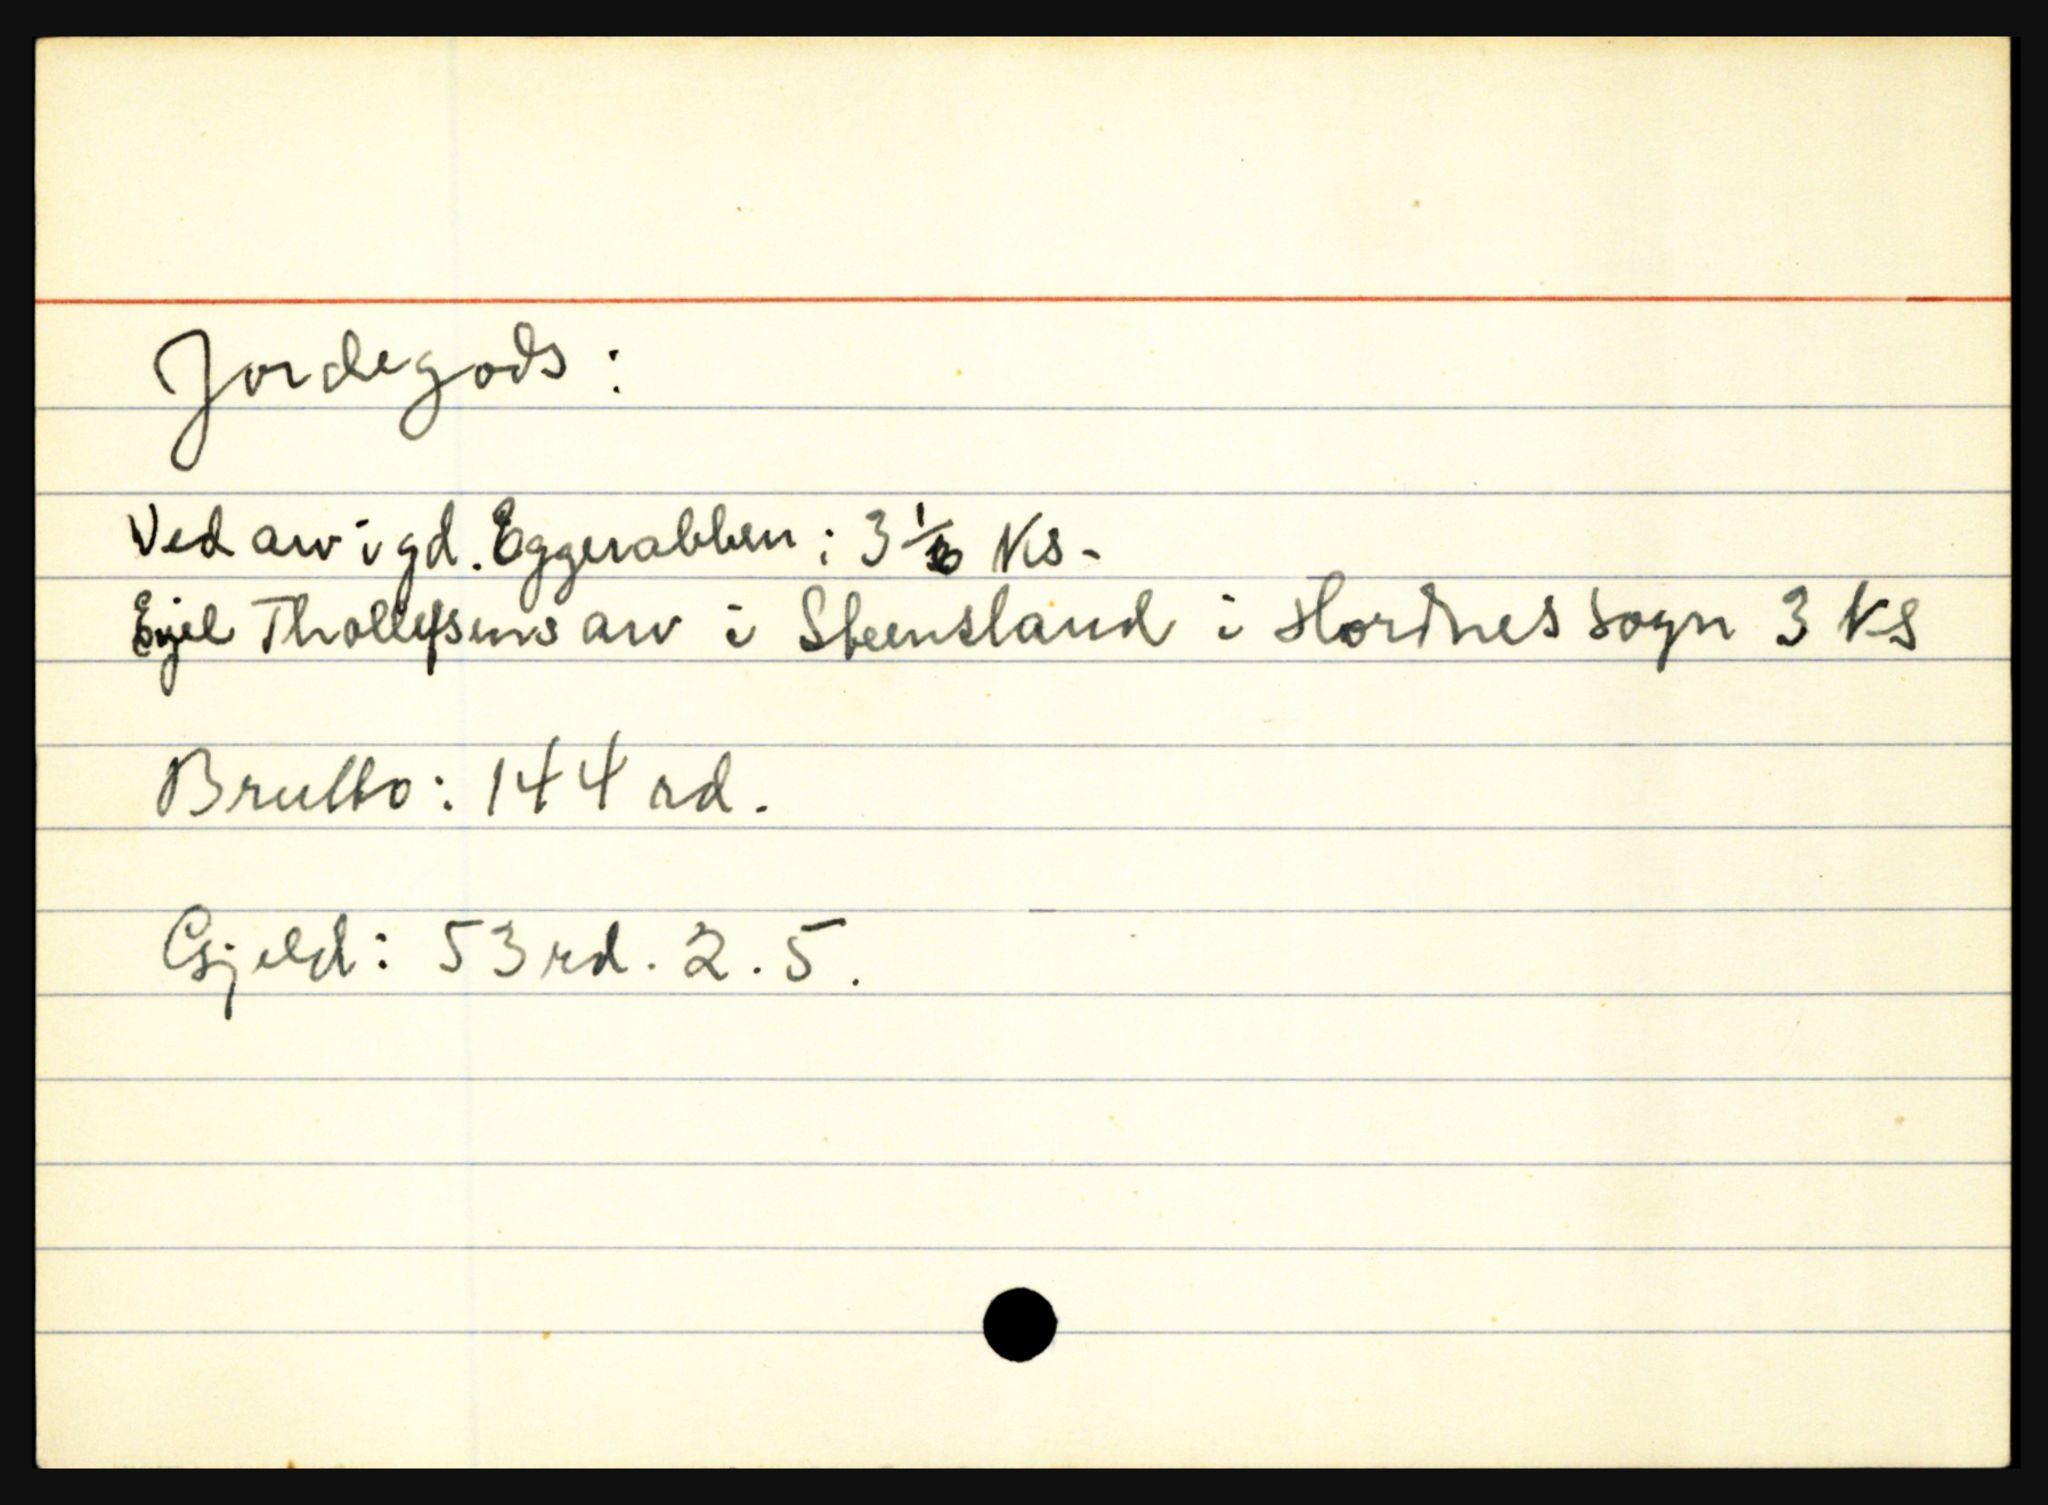 Jordegods:
Ved arv i gd. Eggerabben: 3 1/3 Ks.
Ejel Thollefsens arv i Steensland i Hordnes sogn 3 Ks
Brutto: 144 rd.
Gjeld: 53 rd. 2. 5.